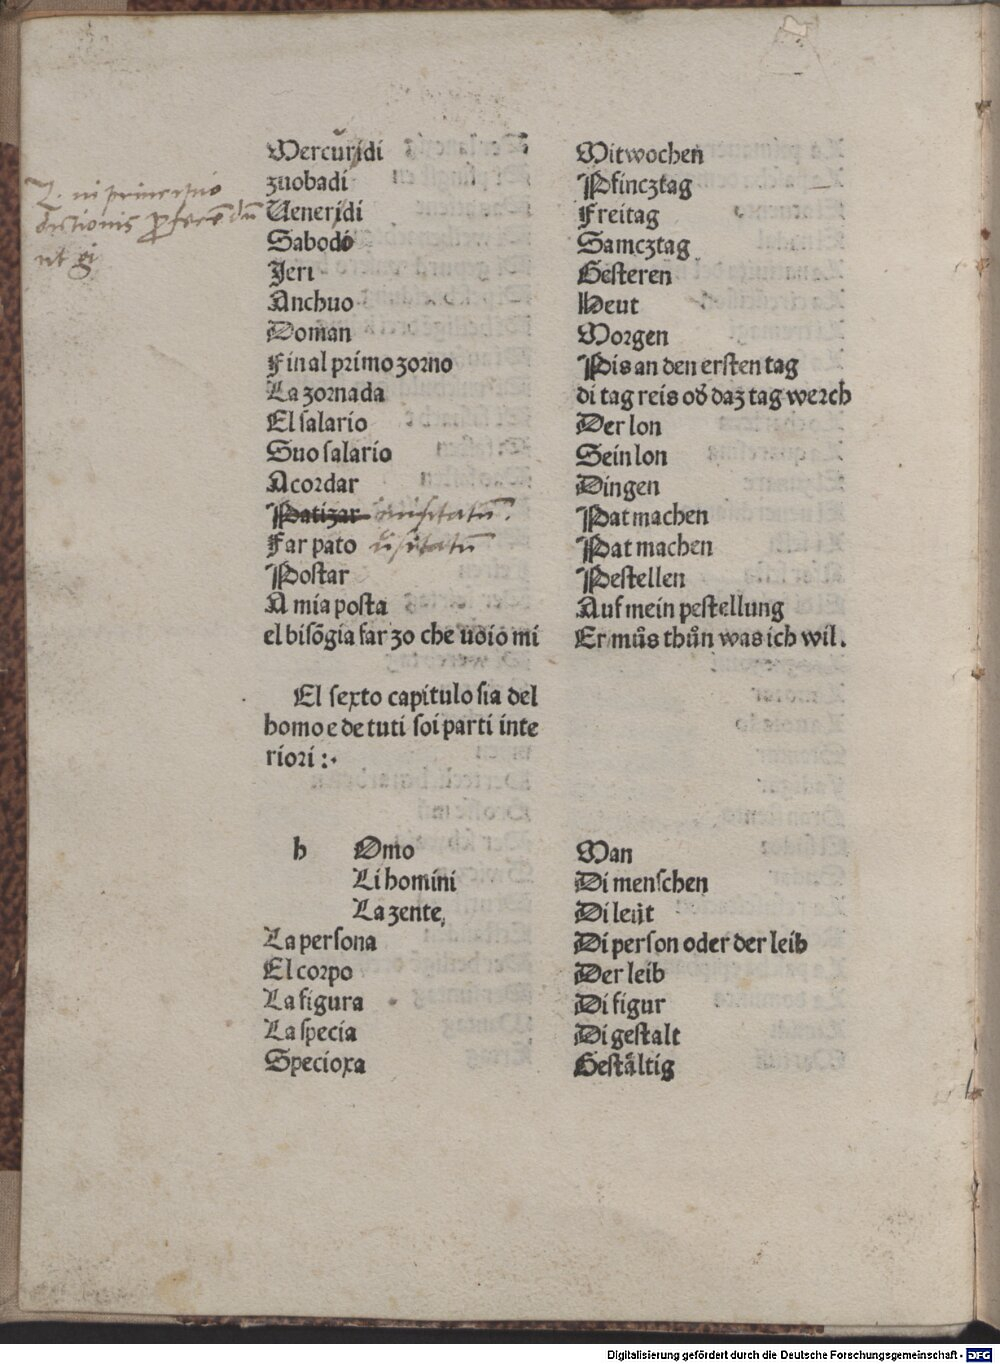 Mercuridi Mitwochen
zuobadi Pfincztag
Z. in principio
dictionis proferendũ
ut gi
Ueneridi Freitag
Sabodo Samcztag
Jeri Gesteren
Anchuo Heut
Doman Morgen
Fin al primo zorno Pis an den ersten tag
La zornada di tag reis od daz tag werch
El salario Der lon
Suo salario Sein lon
Acordar Dingen
Patizar inusitatũ. Pat machen
Far pato usitatũ Pat machen
Postar Pestellen
A mia posta Auf mein pestellung
el bisõgia far zo che uoio mi Er můs thůn was ich wil.
El sexto capitulo sia del
homo e de tuti soi parti inte
riori :·
h Omo Man
Li homini Di menschen
La zente, Di leüt
La persona Di person oder der leib
El corpo Der leib
La figura Di figur
La specia Di gestalt
Specioxa Gestältig
Digitalisierung gefördert durch die Deutsche Forschungsgemeinschaft - DFG